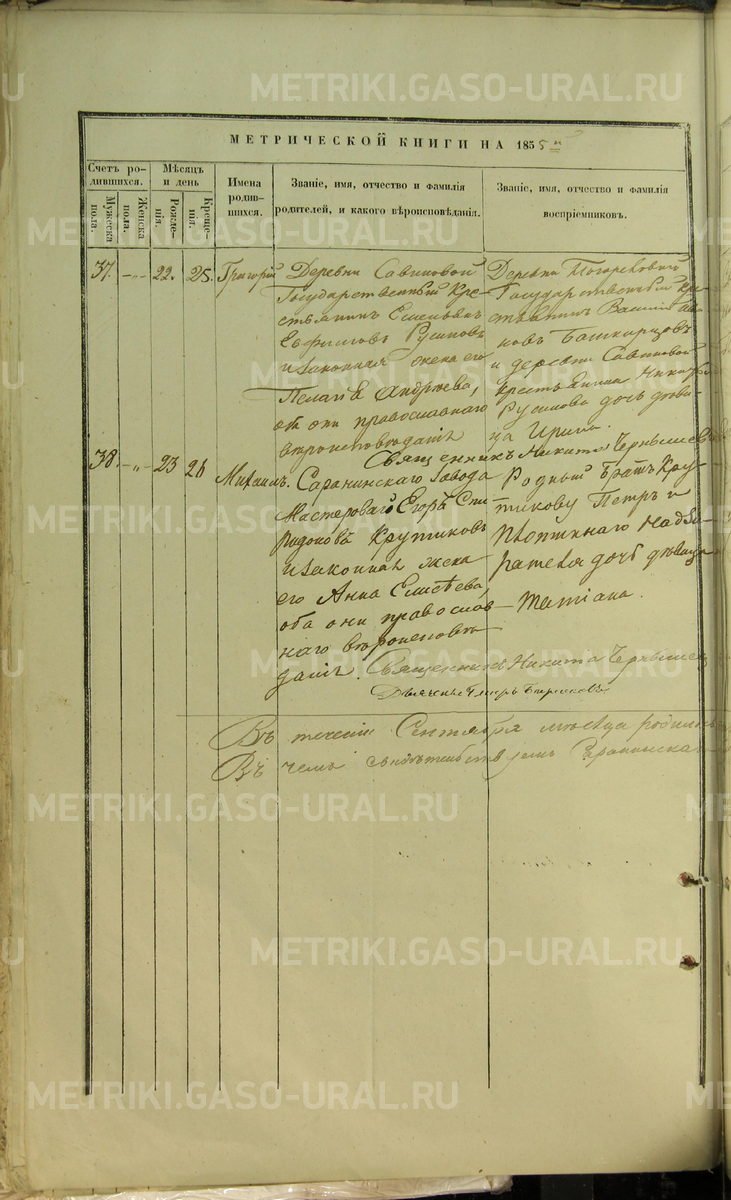 METRIKI.GASO-URAL.RU
МЕТРИЧЕСКОЙ КНИГИ НА 1855
Счетъ родившихся.
Мѣсяцъ и день
Мужеска пола.
Женска пола.
Рожденія.
Крещенія.
Имена родившихся.
Званіе, имя, отчество и фамилія родителей, и какого вѣроисповѣданія.
Званіе, имя, отчество и фамилія воспріемниковъ.
37. 22. 25. Григорій
Деревни Савиновой
Государственный Кре-
стьянинъ
Русиновъ
и законная жена его
Пелагія Андрѣева,
оба они православнаго
вѣроисповѣданія
Деревни
Государственный кре-
стьянинъ Василій
новъ Башкирцовъ
и деревни Савиновой
крестьянина
Русинова дочь дѣви-
ца Ирина.
Священникъ Никита Чернышевъ
38. 23 26 Михаилъ.
Саранинскаго Завода
Мастеровой Егоръ Спи-
ридоновъ Крутиковъ
и законная жена
его Анна Елисѣева,
оба они православ-
наго вѣроисповѣ-
данія.
Родный братъ Кру-
тикову Петръ и
Плотиннаго Надзи-
рателя дочь дѣвица
Татіана.
Священникъ Никита Чернышевъ
Въ теченіи Сентября мѣсяца родилось
Въ чемъ свидѣтельствуемъ